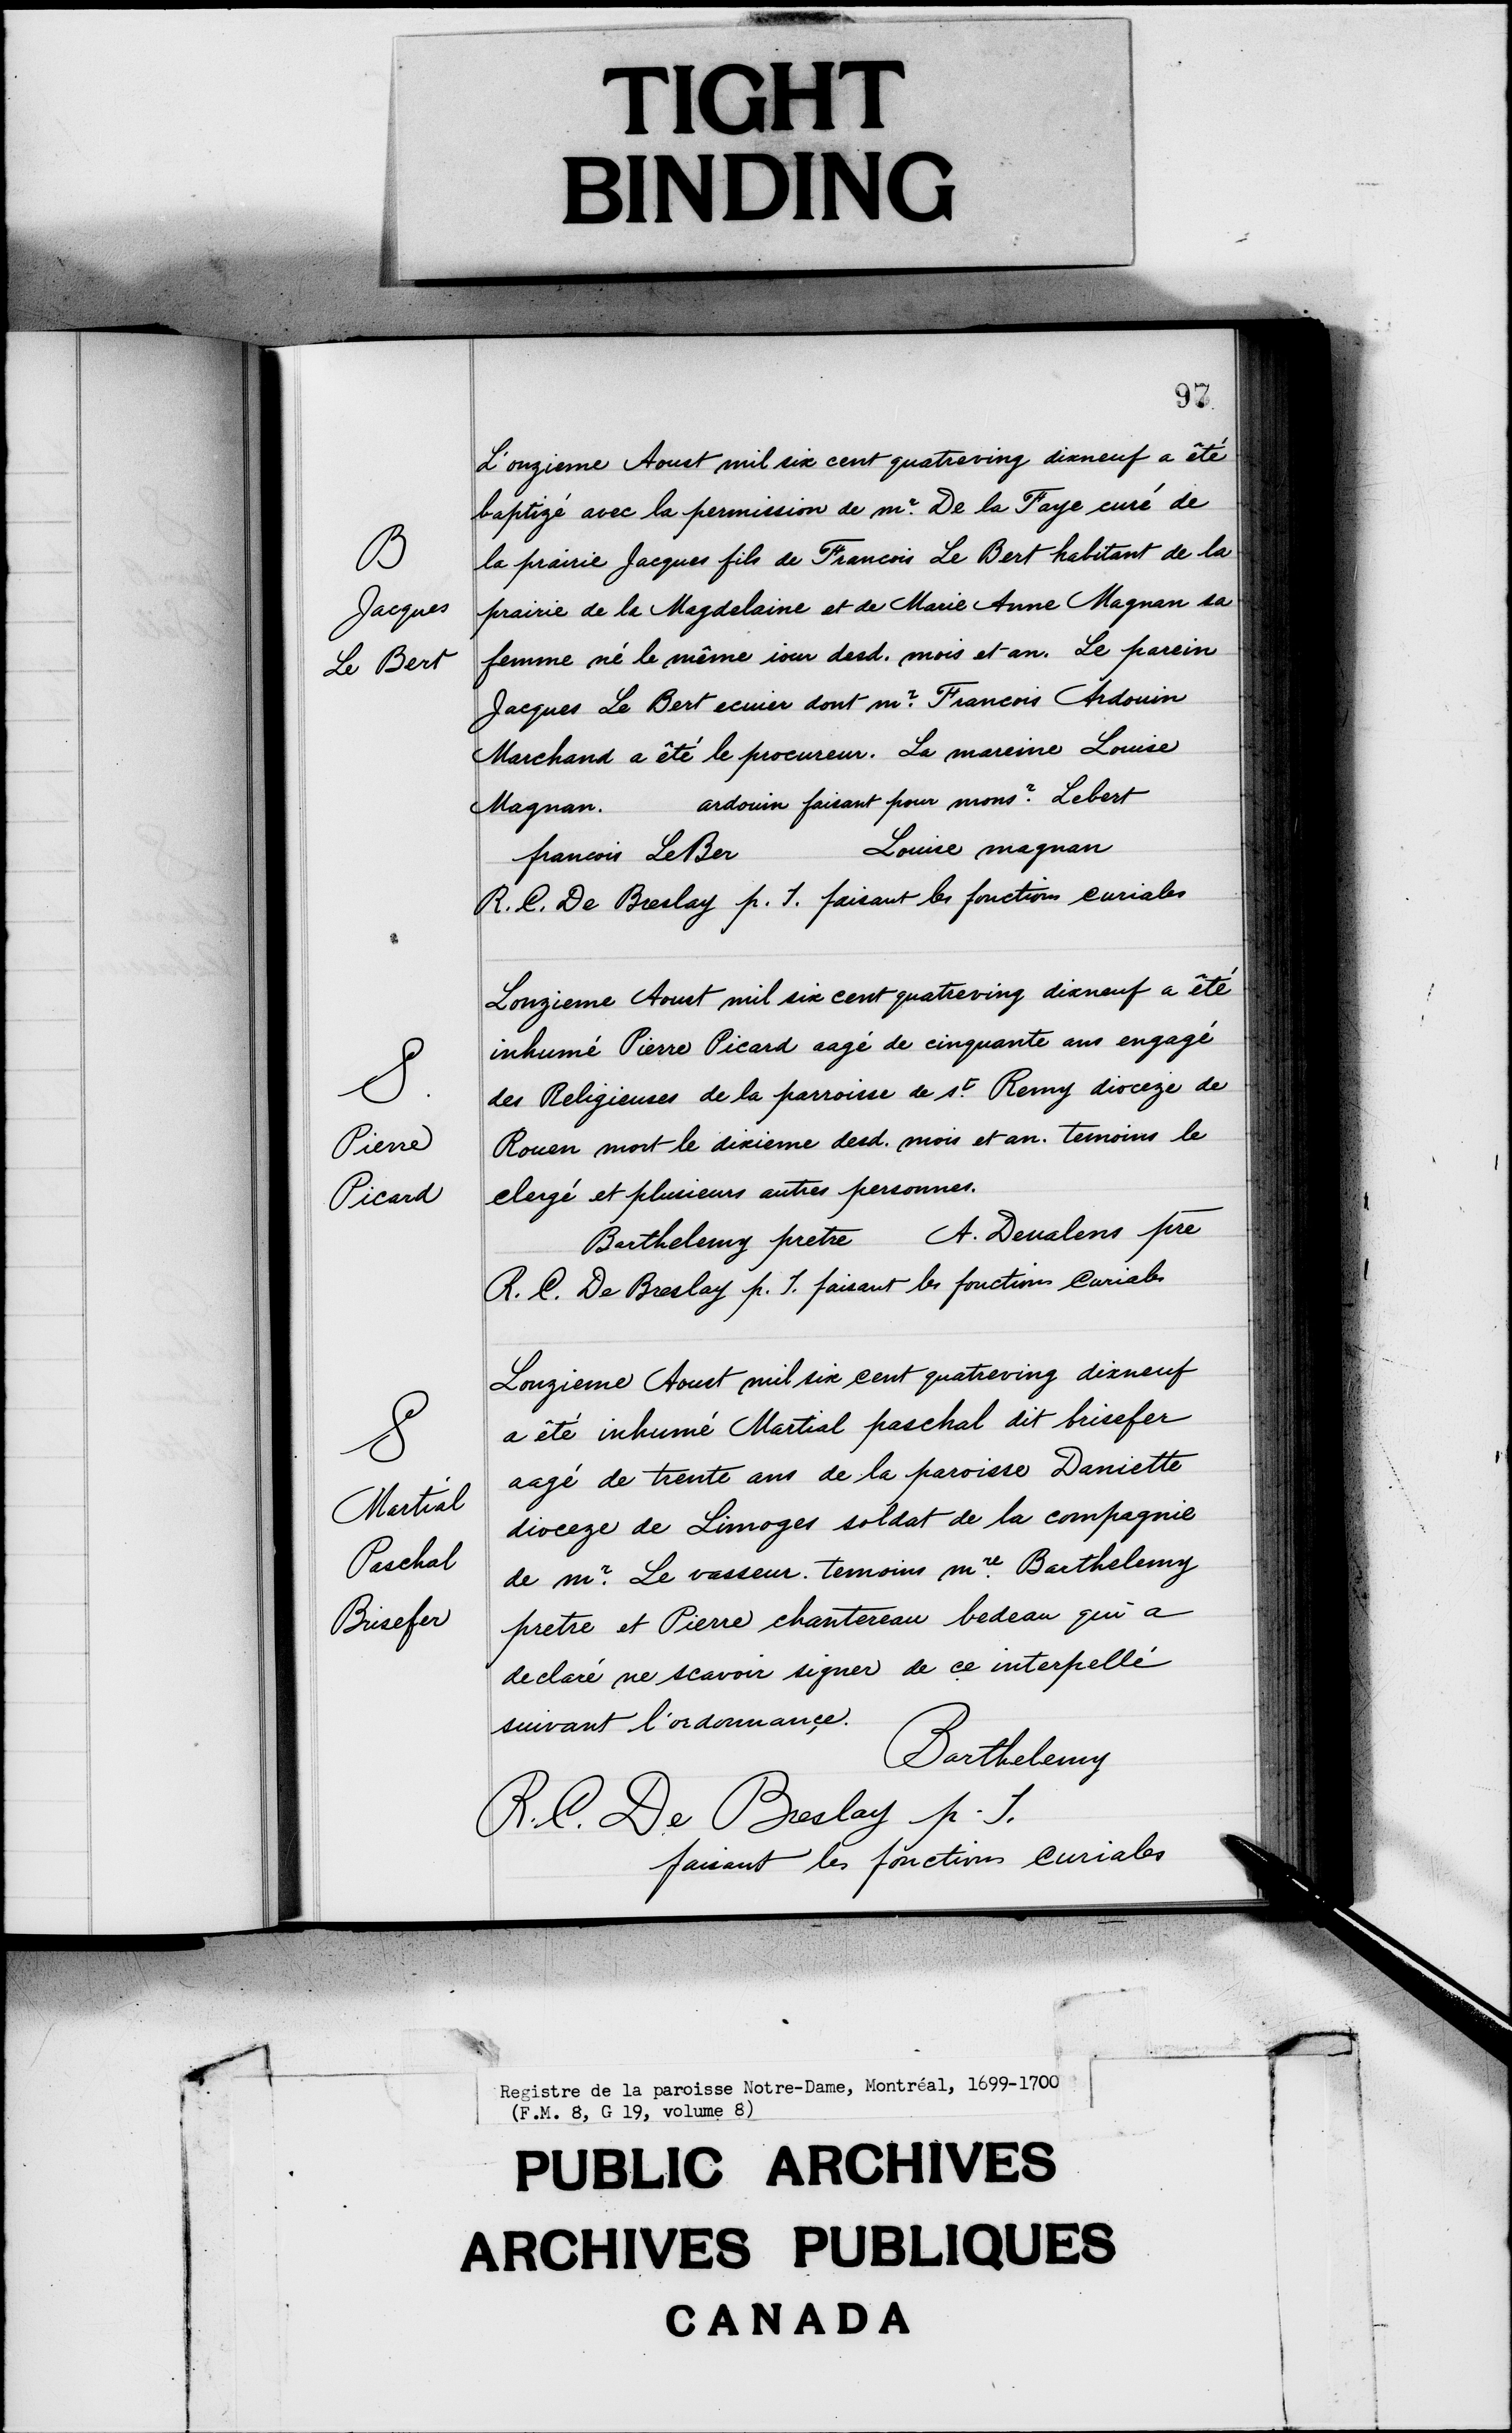 TIGHT
BINDING
97.
L'onzieme Aoust mil six cent quatreving dixneuf a êté
baptizé avec la permission de mr. De la Faye curé de
B
la prairie Jacques fils de Francois Le Bert habitant de la
Jacques
prairie de la Magdelaine et de Marie Anne Magnan sa
Le Bert
femme né le même iour desd. mois et an. Le parein
Jacques Le Bert ecuier dont mr. Francois Ardouin
Marchand a êté le procureur. La mareine Louise
Magnan. ardouin faisant pour monsr. Lebert
francois LeBer Louise magnan
R. C. De Breslay p. J. faisant les fonctions curiales
Lonzieme Aoust mil six cent quatreving dixneuf a êté
inhumé Pierre Picard aagé de cinquante ans engagé
S.
des Religieuses de la parroisse de st. Remy dioceze de
Pierre
Rouen mort le dixieme desd. mois et an. temoins le
Picard
clergé et plusieurs autres personnes.
Barthelemy pretre A. Deualens pre
R. C. De Breslay p. J. faisant les fonctions Curiales
Lonzieme Aoust mil six cent quatreving dixneuf
S
a êté inhumé Martial paschal dit brisefer
aagé de trente ans de la paroisse Daniette
Martial
dioceze de Limoges soldat de la compagnie
Paschal
de mr. Le vasseur. temoins mre. Barthelemy
Brisefer
pretre et Pierre chantereau bedeau qui a
declaré ne scavoir signer de ce interpellé
suivant l'ordonnançe.
Barthelemy
R. C. De Breslay p. J.
faisant les fonctions curiales
Registre de la paroisse Notre-Dame, Montréal, 1699-1700
(F.M. 8, G 19, volume 8)
PUBLIC ARCHIVES
ARCHIVES PUBLIQUES
CANADA